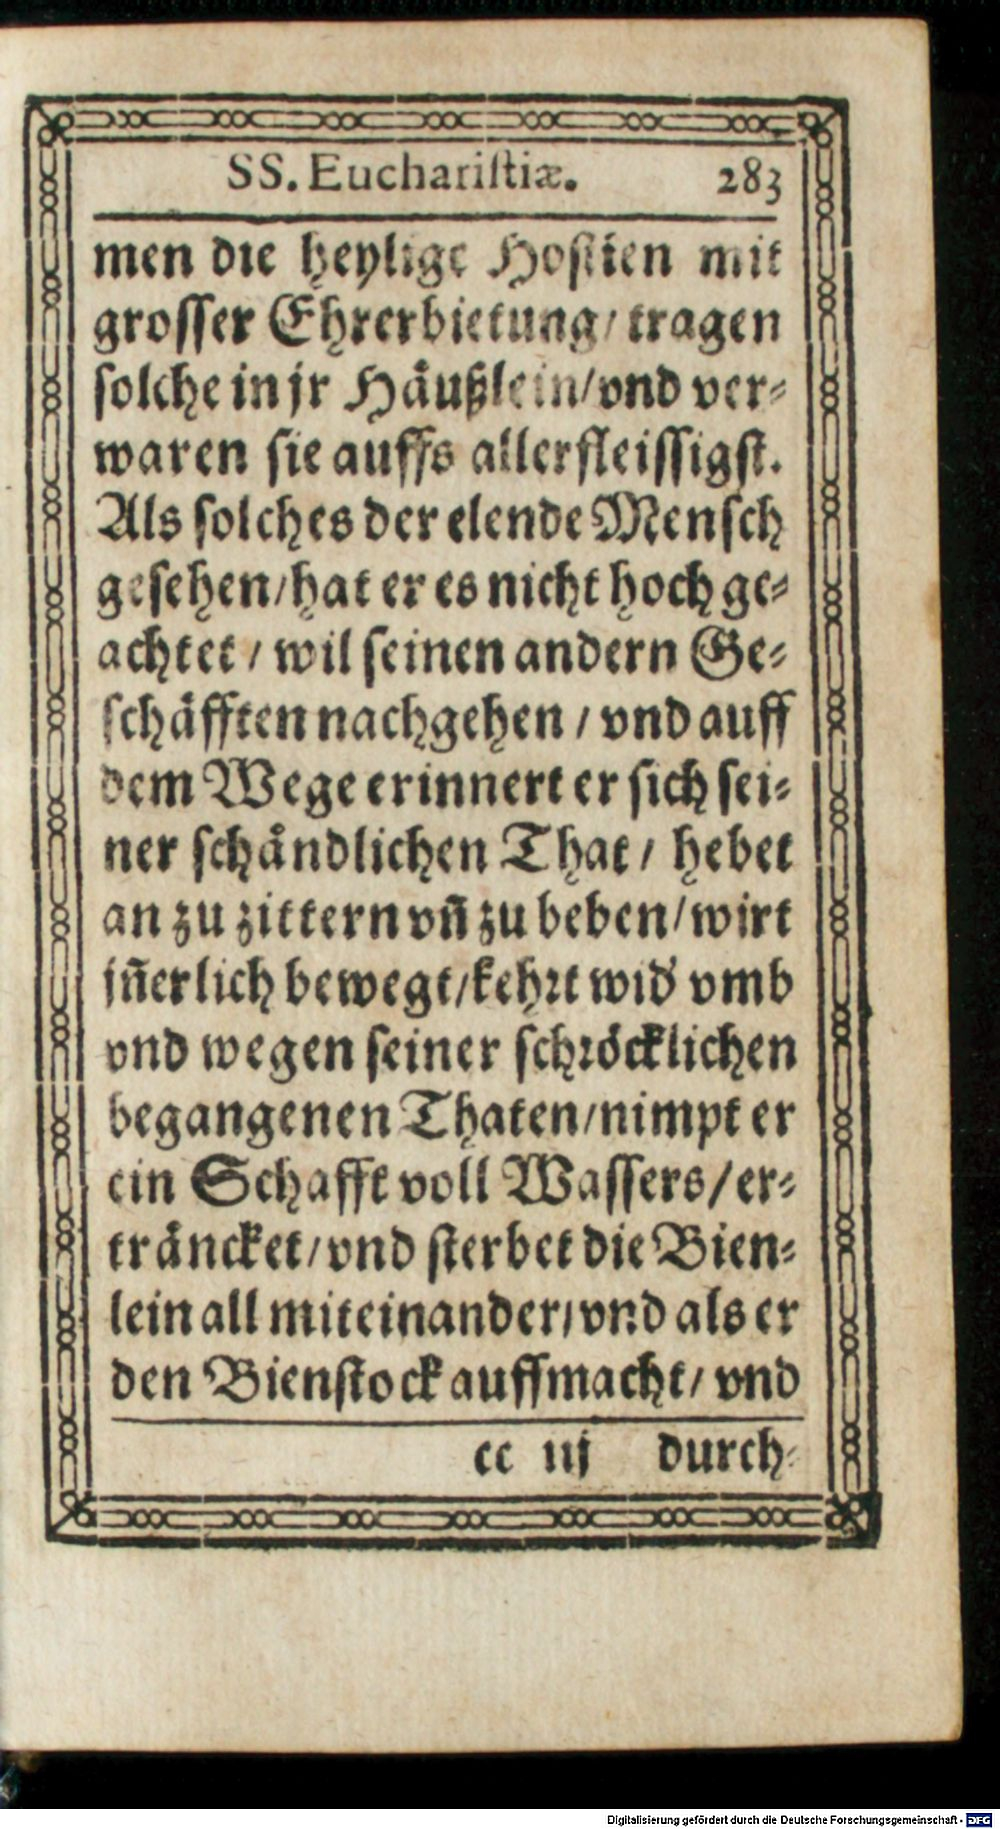 SS. Euchariſtiæ. 283
men die heylige Hoſtien mit
groſſer Ehrerbietung/ tragen
ſolche in jr Häußlein/vnd ver⸗
waren ſie auffs allerfleiſſigſt.
Als ſolches der elende Menſch
geſehen/hat er es nicht hoch ge⸗
achtet / wil ſeinen andern Ge⸗
ſchäfften nachgehen / vnd auff
dem Wege erinnert er ſich ſei⸗
ner ſchåndlichen That / hebet
an zu zittern vñ zu beben/wirt
jñerlich bewegt/kehꝛt wid' vmb
vnd wegen ſeiner ſchꝛöcklichen
begangenen Thaten/nimpt er
ein Schafft voll Waſſers/er⸗
träncket/vnd ſterbet die Bien⸗
lein all miteinander/vnd als er
den Bienſtock auffmacht/ vnd
cc iij durch⸗
Digitalisierung gefördert durch die Deutsche Forschungsgemeinschaft - DFG